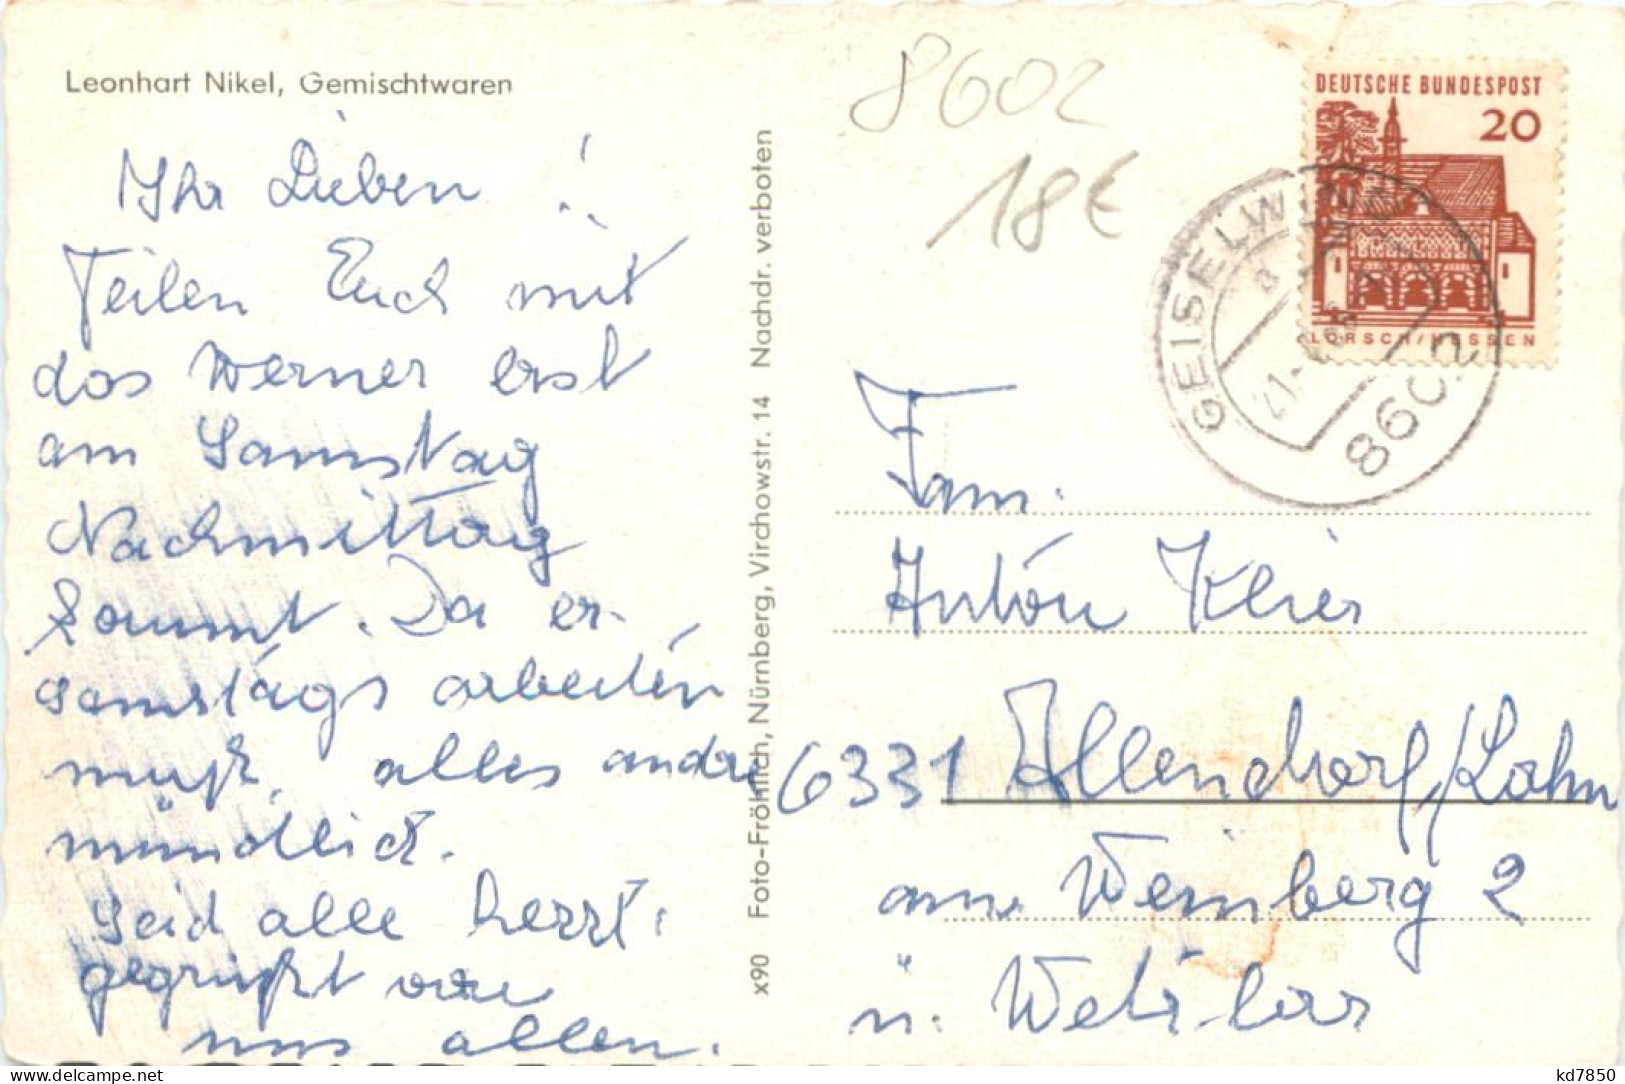 Leonhart Nikel, Gemischtwaren
Ihr Lieben!
Teilen Euch mit
das Werner erst
am Samstag
Nachmittag
kommt. Da er
samstags arbeiten
muß, alles andre
mündlich.
Seid alle herzl.
gegrüßt von
uns allen.
x90 Foto-Fröhlich, Nürnberg, Virchowstr. 14 Nachdr. verboten
8602
18€
DEUTSCHE BUNDESPOST
20
LORSCH/HESSEN
GEISELWIND
8602
Fam.
Anton Klier
6331 Allendorf/Lahn
am Weinberg 2
ü. Wetzlar
kd7850